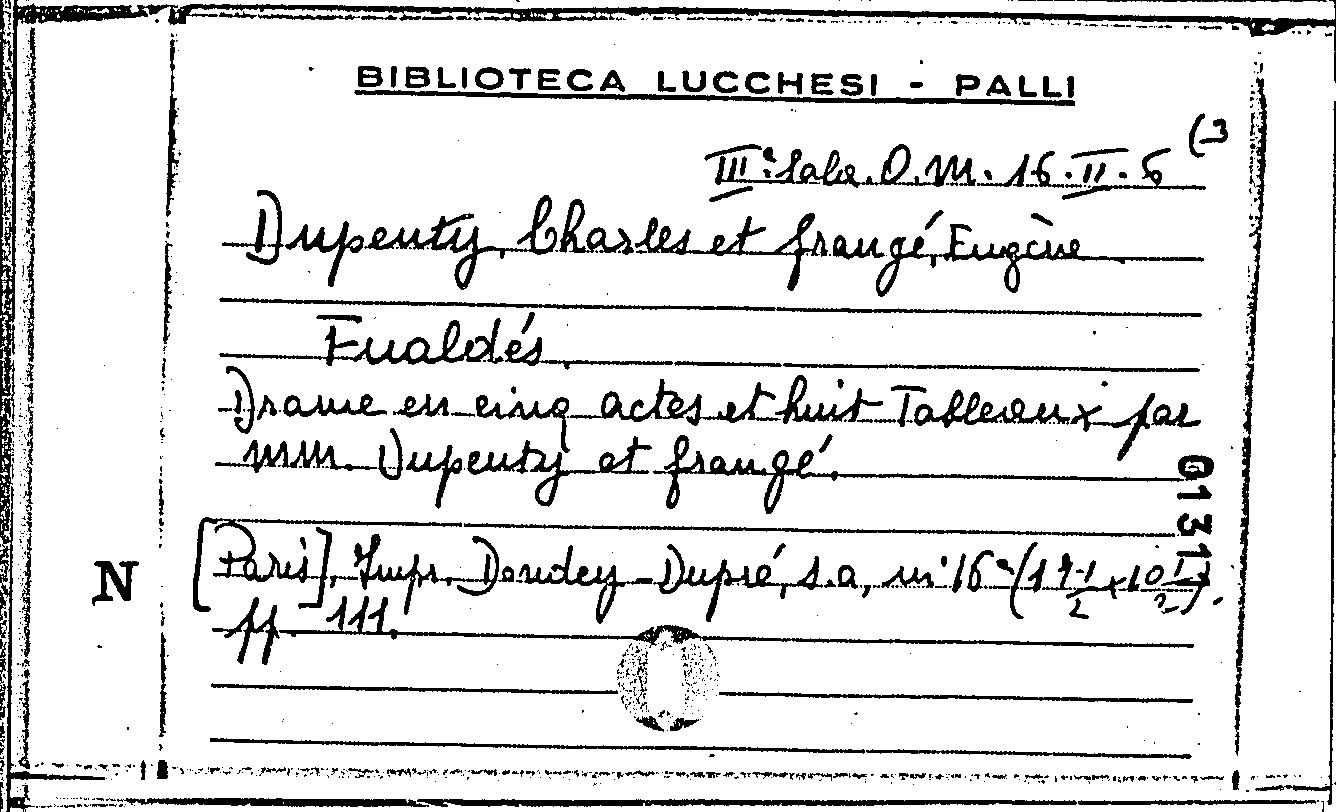 BIBLIOTECA LUCCHESI - PALLI
IIIª Sala. O. M. 16. II. 6 (3
Dupeuty, Charles et Grangé, Eugène
Fualdés.
Drame en cinq actes et huit Tableaux par
MM. Dupeuty et Grangé.
[Paris], Impr. Dondey-Dupré, s.a, in 16° (17 1/2 x 10 1/2).
pp. 111.
N
0131